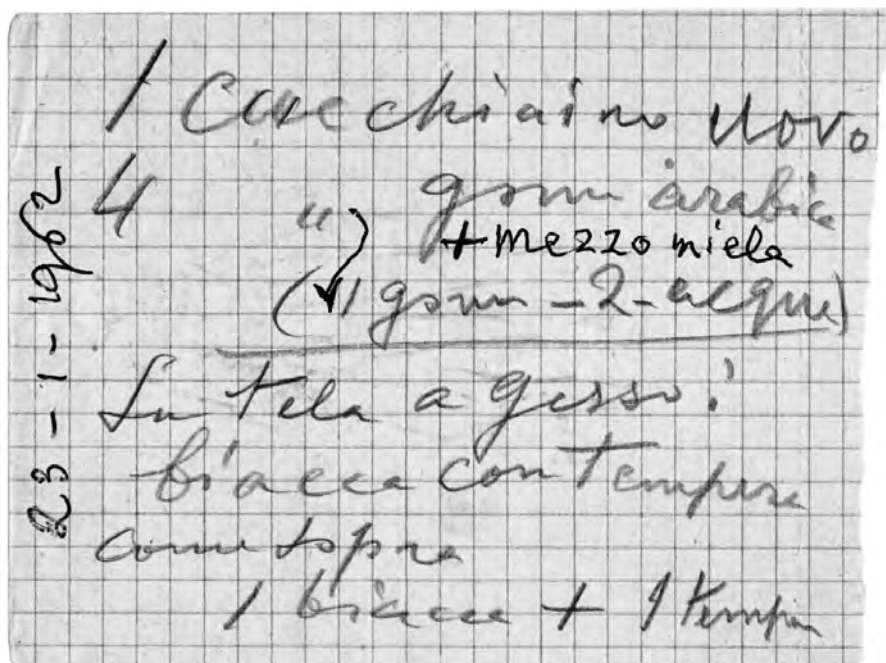 1 Cucchiaino Uovo
4 " gomm arabica
+ mezzo miele
(1 gomm - 2 - acqua)
Su tela a gesso:
biacca con tempera
come sopra
1 biacca + 1 tempera
23-1-1962